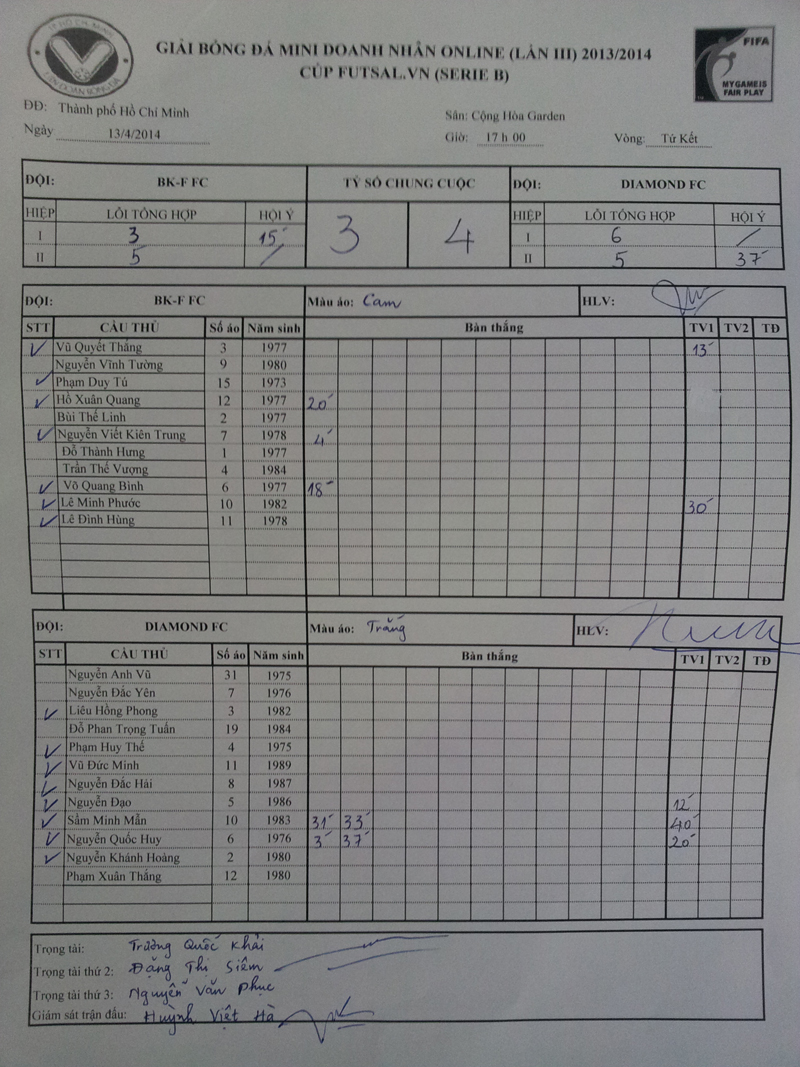 TP HỒ CHÍ MINH
LIÊN ĐOÀN BÓNG ĐÁ
GIẢI BÓNG ĐÁ MINI DOANH NHÂN ONLINE (LẦN III) 2013/2014
CÚP FUTSAL.VN (SERIE B)
FIFA
MY GAME IS
FAIR PLAY
ĐĐ: Thành phố Hồ Chí Minh Sân: Cộng Hòa Garden
Ngày 13/4/2014 Giờ: 17 h 00 Vòng: Tứ Kết
ĐỘI: BK-F FC TỶ SỐ CHUNG CUỘC ĐỘI: DIAMOND FC
HIỆP LỖI TỔNG HỢP HỘI Ý 3 4 HIỆP LỖI TỔNG HỢP HỘI Ý
I 3 15' I 6 /
II 5 / II 5 37'
ĐỘI: BK-F FC Màu áo: Cam HLV:
STT CẦU THỦ Số áo Năm sinh Bàn thắng TV1 TV2 TĐ
✓ Vũ Quyết Thắng 3 1977 13'
Nguyễn Vĩnh Tường 9 1980
✓ Phạm Duy Tú 15 1973
✓ Hồ Xuân Quang 12 1977 20'
Bùi Thế Linh 2 1977
✓ Nguyễn Viết Kiên Trung 7 1978 4'
Đỗ Thành Hưng 1 1977
Trần Thế Vượng 4 1984
✓ Võ Quang Bình 6 1977 18'
✓ Lê Minh Phước 10 1982 30'
✓ Lê Đình Hùng 11 1978
ĐỘI: DIAMOND FC Màu áo: Trắng HLV:
STT CẦU THỦ Số áo Năm sinh Bàn thắng TV1 TV2 TĐ
Nguyễn Anh Vũ 31 1975
Nguyễn Đắc Yên 7 1976
✓ Liêu Hồng Phong 3 1982
Đỗ Phan Trọng Tuấn 19 1984
✓ Phạm Huy Thế 4 1975
✓ Vũ Đức Minh 11 1989
✓ Nguyễn Đắc Hải 8 1987
✓ Nguyễn Đạo 5 1986 12'
✓ Sầm Minh Mẫn 10 1983 31' 33' 40'
✓ Nguyễn Quốc Huy 6 1976 3' 37' 20'
✓ Nguyễn Khánh Hoàng 2 1980
Phạm Xuân Thắng 12 1980
Trọng tài: Trương Quốc Khải
Trọng tài thứ 2: Đặng Thị Siêm
Trọng tài thứ 3: Nguyễn Văn Phục
Giám sát trận đấu: Huỳnh Việt Hà